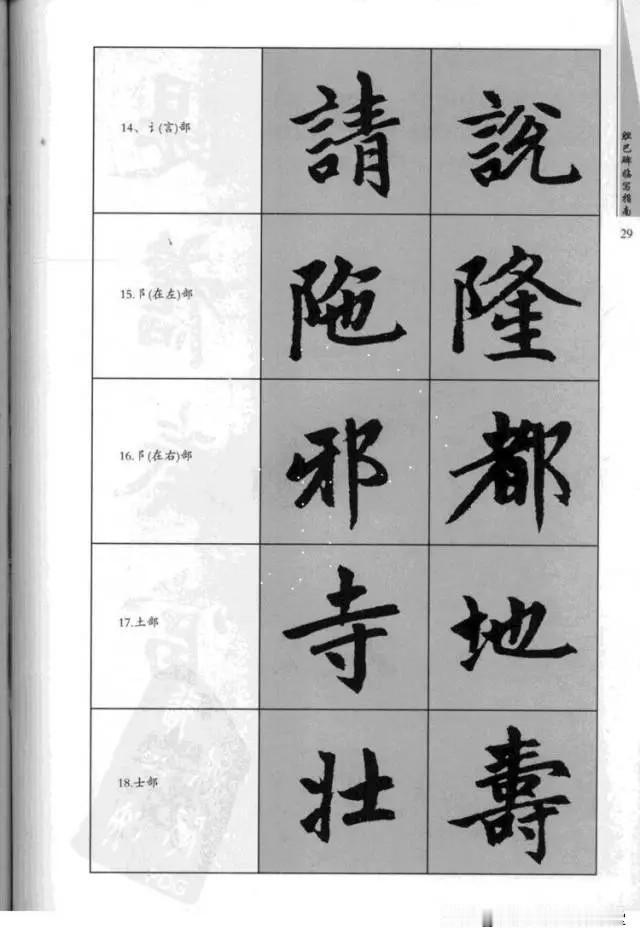 14、讠(言)部 請 說
15.阝(在左)部 陁 隆
16.阝(在右)部 邪 都
17.土部 寺 地
18.士部 壮 壽
胆巴碑临写指南
29